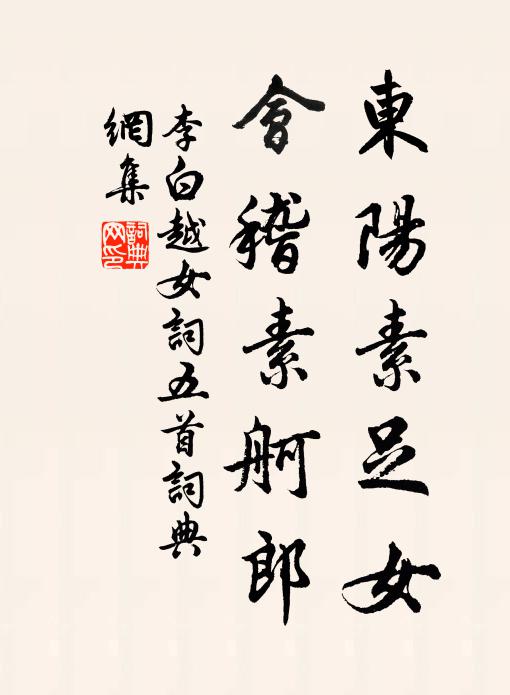 東陽素足女
會稽素舸郎
李白越女詞五首詞典
網集
詞典
网印